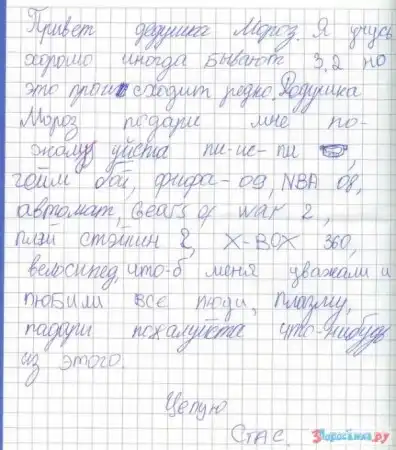 Привет дедушка Мороз. Я учусь
хорошо иногда бывают 3,2 но
это проис сходит редко. Дедушка
Мороз подари мне по-
жалуз уйста пи-ис-пи,
гейм бой, фифа-09, NBA 08,
автомат, Gears of war 2,
плэй стэйшин 2, X-BOX 360,
велосипед, что-б меня уважали и
любили все люди, плазму,
падари пожалуйста что-нибудь
из этого.
Целую
Стас.
Zaposьonka.ру